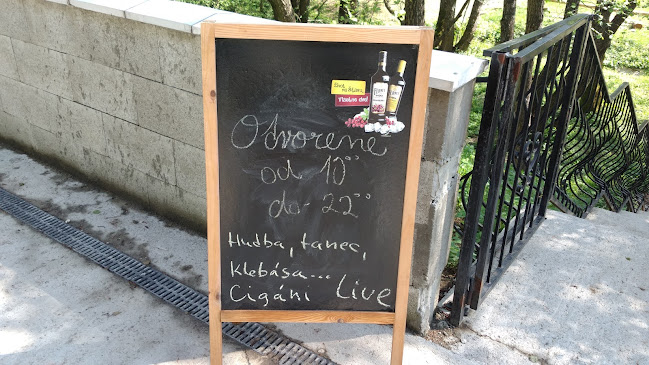 Otvorené
od 10⁰⁰
do 22⁰⁰
Hudba, tanec,
klebása...
Cigáni Live